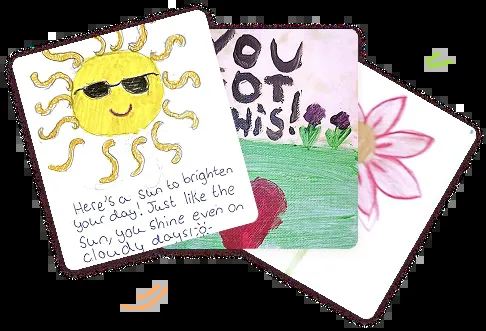 Here's a sun to brighten
your day! Just like the
sun, you shine even on
cloudy days! :)
YOU
GOT
THIS!